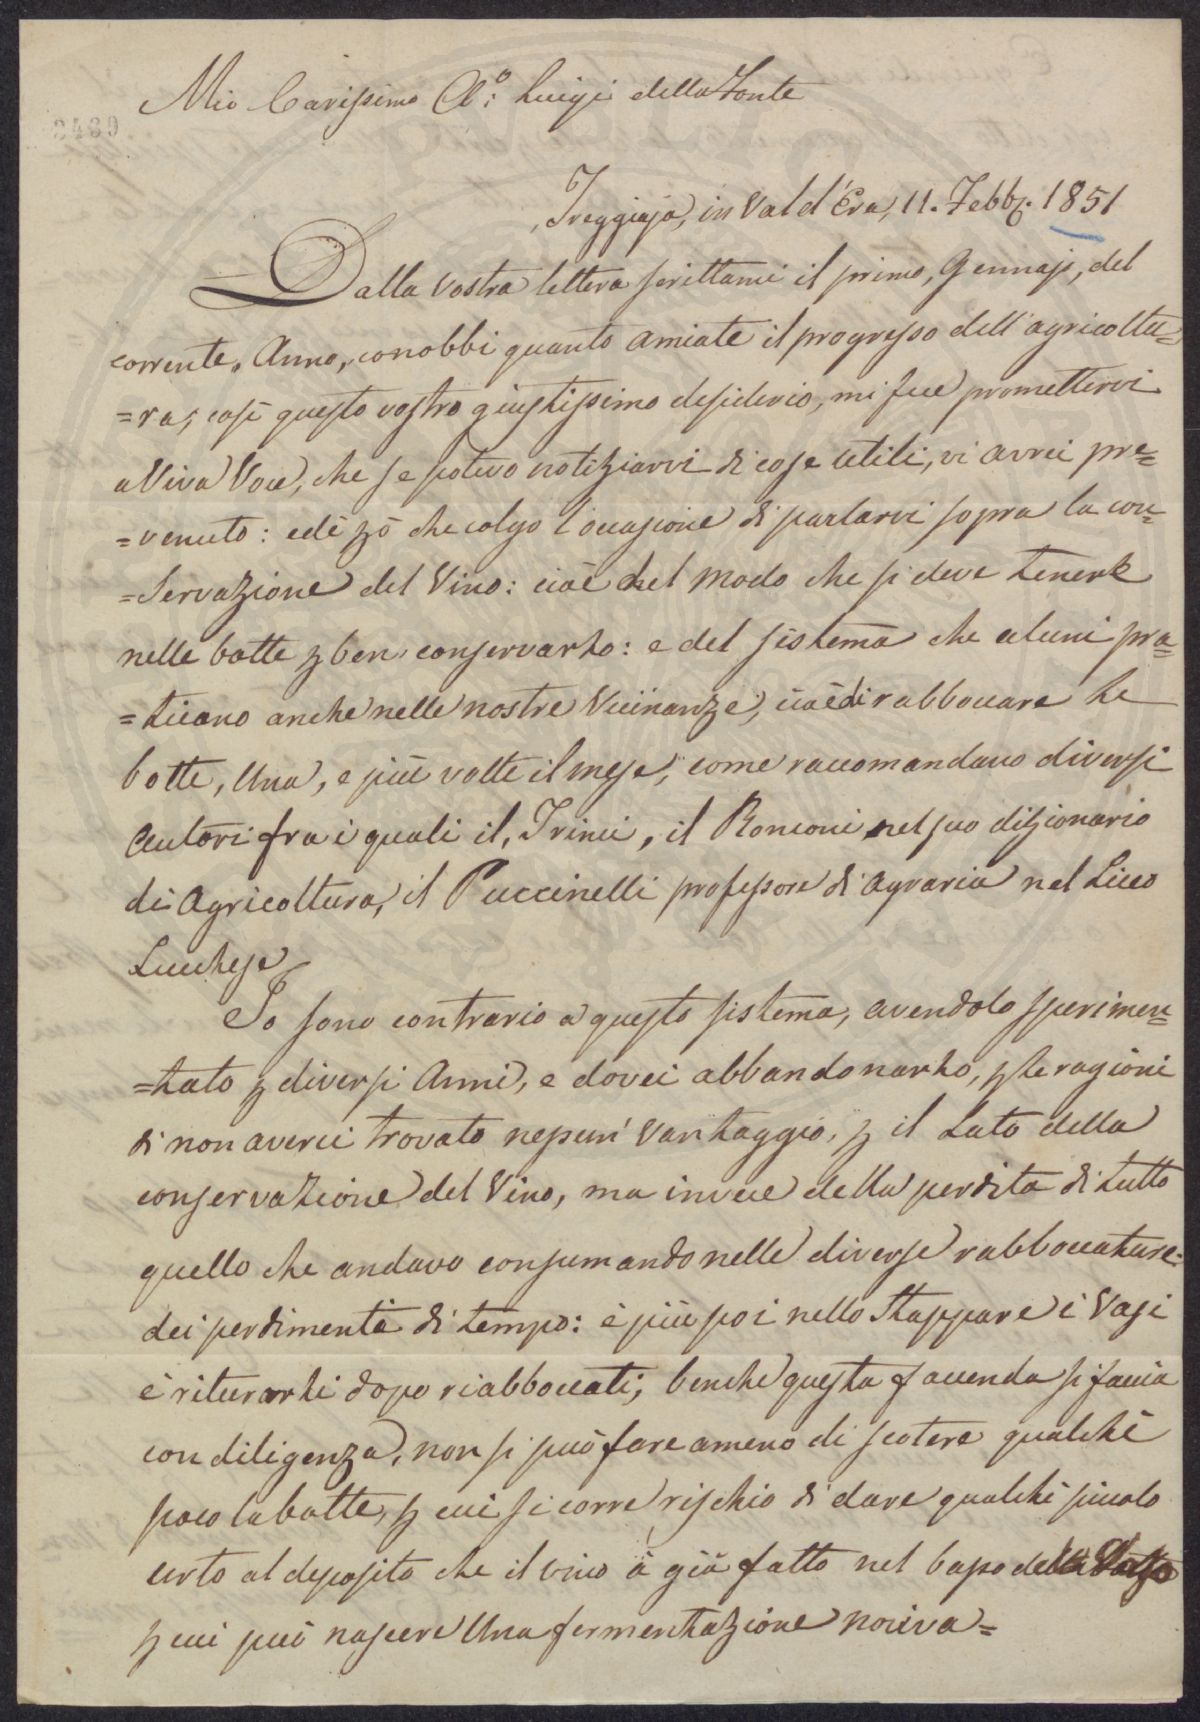 Mio Carissimo A.º Luigi della Fonte
3489
Treggiaja, in Val d'Era, 11. Febb. 1851
Dalla vostra lettera scrittami il primo, Gennajo, del
corrente, Anno, conobbi quanto amiate il progresso dell'agricoltu=
=ra, così questo vostro giustissimo desiderio, mi fece promettervi
a Viva Voce, che se potevo notiziarvi di cose utili, vi avrei pre=
=venuto: ed è pò che colgo l'occasione di parlarvi sopra la con=
=servazione del Vino: cioè del modo che si deve tenere
nelle botte p ben conservarlo: e del sistema che alcuni pra=
=ticano anche nelle nostre Vicinanze, cioè di rabboccare le
botte, Una, e più volte il mese, come raccomandano diversi
Autori fra i quali il, Trinci, il Ronconi nel suo dizionario
di Agricoltura, il Puccinelli professore di Agraria nel Liceo
Lucchese
Io sono contrario a questo sistema, avendolo sperimen=
=tato p diversi Anni, e dovei abbandonarlo, p le ragioni
di non averci trovato nessun' Vantaggio, p il Lato della
conservazione del Vino, ma invece della perdita di tutto
quello che andavo consumando nelle diverse rabboccature
dei perdimenti di tempo: e più poi nello Stappare i Vasi
e riturarli dopo riabboccati, benche questa faccenda si faccia
con diligenza, non si può fare ameno di scotere qualche
poco la botte, p cui si corre rischio di dare qualche piccolo
urto al deposito che il vino à già fatto nel basso della
p cui può nascere Una fermentazione nociva=